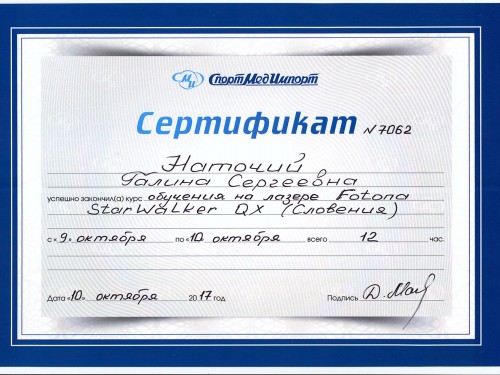 МИ СпортМедИмпорт
Сертификат N7062
Наточий
Галина Сергеевна
успешно закончил(а) курс обучения на лазере Fotona
StarWalker QX (Словения)
с «9» октября по «10» октября всего 12 час.
Дата «10» октября 2017 год Подпись